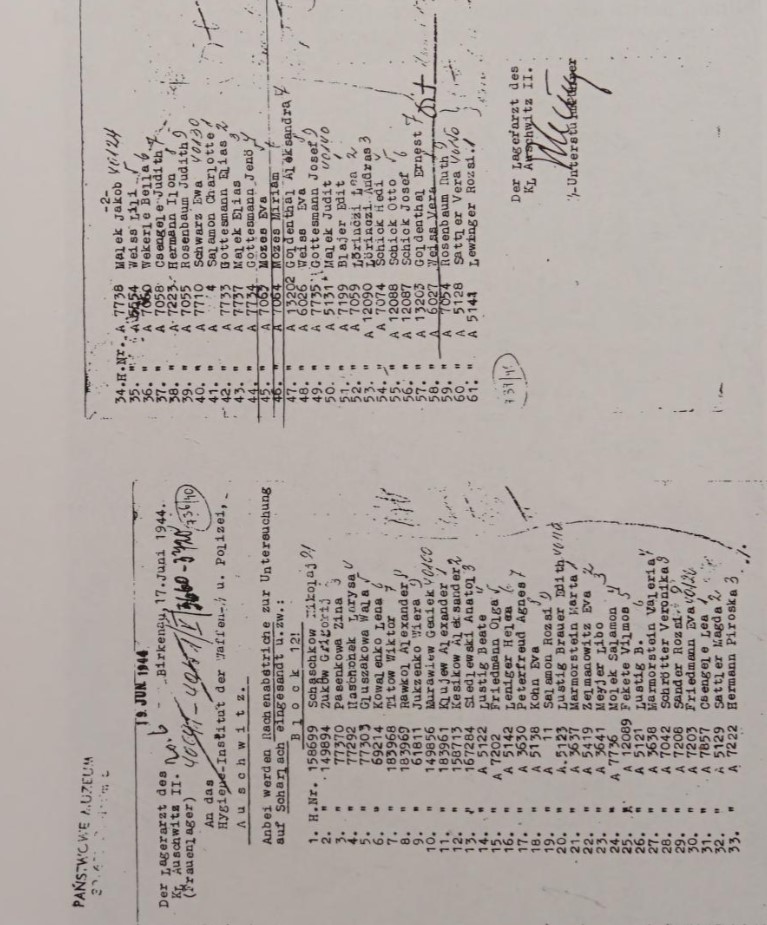 PAŃSTWOWE MUZEUM
19. JUN 1944
Der Lagerarzt des
KL Auschwitz II.
(Frauenlager)
Birkenau, 17.Juni 1944.
An das
Hygiene-Institut der Waffen-SS u. Polizei,
Auschwitz.
Anbei werden Rachenabstriche zur Untersuchung
auf Scharlach eingesandt u.zw.:
Block 12:
1. H.Nr. 158699 Schaschkow Nikolaj
2. " 149894 Zuków Grigorij
3. " 77370 Pasenkowa Zina 3
4. " 77292 Larysa
5. " 77303 Gluszakowa Wala
6. " 69214 Kowalenko Lena
7. " 183968 Titow Wiktor
8. " 183969 Rawkol Alexander
9. " 61811 Jukzenko Wiera
10. " 149856 Murawiew Geniek
11. " 183961 Klujew Alexander
12. " 158713 Kesikow Aleksander 2
13. " 167284 Siedlewski Anatol 3
14. " A 5122 Lustig Beate
15. " A 7202 Friedmann Olga
16. " A 5142 Leniger Helen
17. " A 3630 Peterfreud Agnes 7
18. " A 5138 Kohn Eva
19. " A Salamon Rozsi
20. " A 5123 Lustig Brauer Edith
21. " A 3637 Marmorstein Marta
22. " A 5119 Zelmanowitz Eva 2
23. " A 3641 Meyjer Libo 3
24. " A 7736 Molek Salamon
25. " A 12089 Fekete Vilmos 5
26. " A 5121 Lustig B.
27. " A 3638 Marmorstein Valeria
28. " A 7042 Schrötter Veronika
29. " A 7208 Sander Rozsi
30. " A 7203 Friedmann Eva
31. " A 7857 Csengele Lea
32. " A 5129 Sattler Magda 2
33. " A 7222 Hermann Piroska 3
./.
-2-
34. H.Nr. A 7738 Malek Jakob
35. " Weiss Lili
36. " A Wekerle Bella
37. " A 7058 Csengele Judith
38. " A 7223 Hermann Ilon
39. " A 7055 Rosenbaum Judith
40. " A 7710 Schwarz Ewa
41. " A 4 Salamon Charlotte
42. " A 7733 Gottesmann Elias 2
43. " A 7737 Malek Elias
44. " A 7734 Gottesmann Jenö
45. " A 7063 Mozes Eva
46. " A 7064 Mozes Miriam
47. " A 13202 Goldenthal Aleksandra
48. " A 6026 Weiss Eva
49. " A 7735 Gottesmann Josef
50. " A 5131 Malek Judit
51. " A 7199 Blajer Edit
52. " A 7059 Lörinczi Lea 2
53. " A 12090 Lörinczi Andras 3
54. " A 7074 Schick Hedi
55. " A 12088 Schick Otto
56. " A 12087 Schick Josef
57. " A 13203 Goldenthal Ernest 7
58. " A 6027 Weiss Vera
59. " A 7054 Rosenbaum Ruth
60. " A 5128 Sattler Vera
61. " A 5141 Lewinger Rozsi
Der Lagerarzt des
KL Auschwitz II.